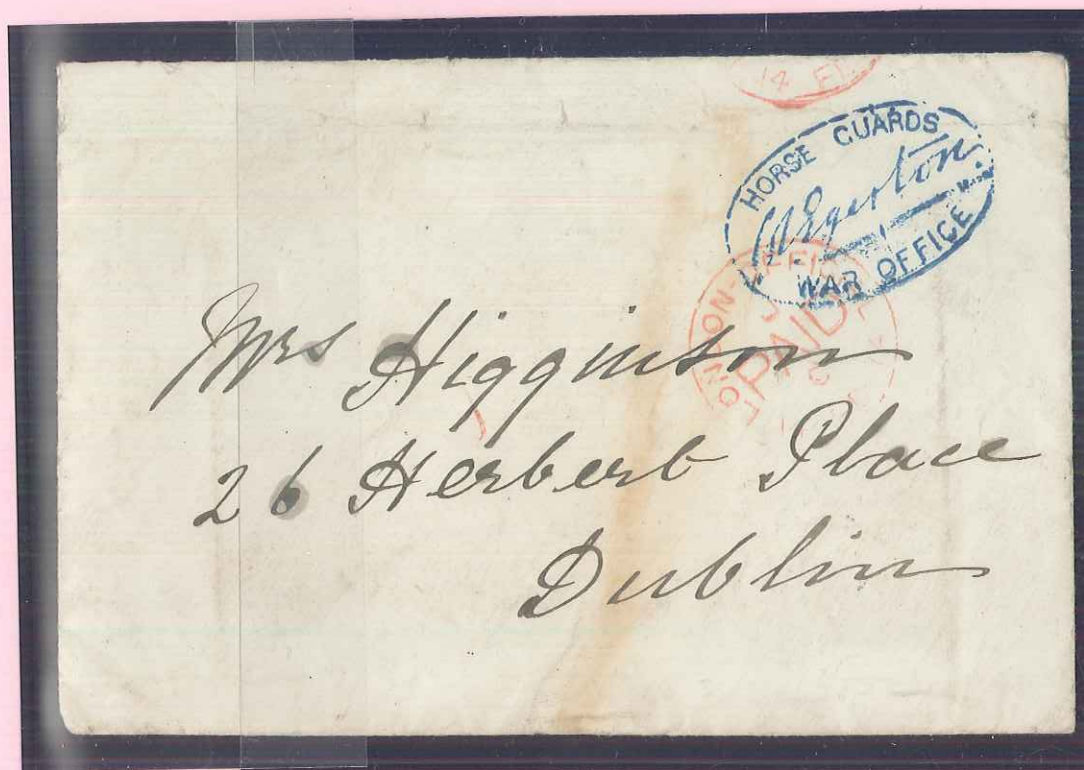 14 FE
HORSE GUARDS
Egerton
WAR OFFICE
LONDON-OFFI
PAID
Mrs Higginson
26 Herbert Place
Dublin